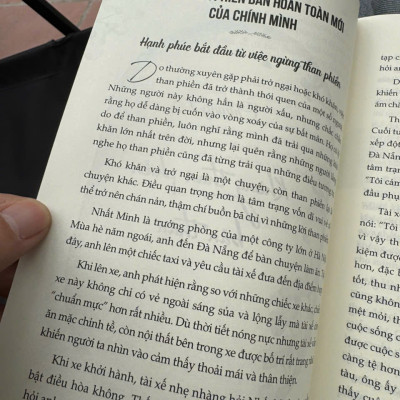 BẢN HOÀN TOÀN MỚI
CỦA CHÍNH MÌNH
Hạnh phúc bắt đầu từ việc ngừng than phiền
Do thường xuyên gặp phải trở ngại hoặc khó khăn
than phiền đã trở thành thói quen của một số người.
Những người này không hẳn là người xấu, nhưng chắc
rằng họ dễ dàng bị cuốn vào vòng xoáy của sự bất mãn. Họ
do để than phiền, luôn nghĩ rằng mình đã trải qua những
khăn lớn nhất trên đời, nhưng lại quên rằng những người
nghe họ than phiền cũng đã từng trải qua những điều tương
Khó khăn và trở ngại là một chuyện, còn than phiền lại
chuyện khác. Điều quan trọng hơn là tâm trạng vốn đã vui vẻ
thể trở nên chán nản, thậm chí buồn bã chỉ vì những lời than phiền.
Nhất Minh là trưởng phòng của một công ty lớn ở Hà
Mùa hè năm ngoái, anh đến Đà Nẵng để bàn chuyện làm ăn.
đây, anh lên một chiếc taxi và yêu cầu tài xế đưa đến địa điểm
Khi lên xe, anh phát hiện rằng so với những chiếc xe khác,
xe này không chỉ có vẻ ngoài sáng sủa và lộng lẫy mà tài xế
"chuẩn mực" hơn rất nhiều. Dù thời tiết nóng nực nhưng tài xế
ăn mặc chỉnh tề, còn nội thất bên trong xe được bố trí rất trang
khiến người ta nhìn vào cảm thấy thoải mái và thân thiện.
Khi xe khởi hành, tài xế nhẹ nhàng hỏi Nhất
bật điều hòa không.
tạp c
hỏi an
D
kiện
ấm ch
Th
Cuối tu
xếp độ
Đà Nẵn
tâm trạ
"Tôi cản
đầu phụ
Tài x
nói: "Tôi
vì vậy th
kiệm được
hơn, đặc
tốt, thu nh
cũng không
mệt mỏi, th
cuộc sống c
cuộc sống
càng tệ hơn
tàu, ông ấy
thấy cuộc